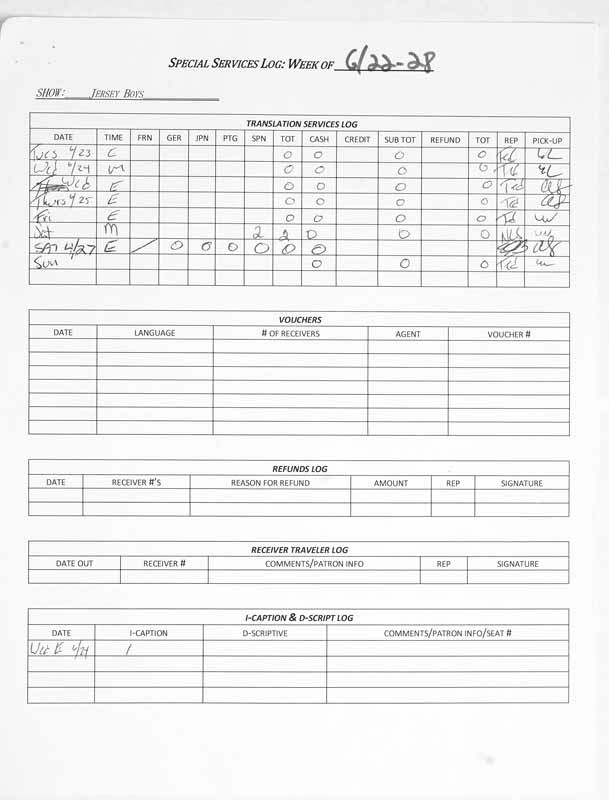 SPECIAL SERVICES LOG: WEEK OF 6/22-28
SHOW: JERSEY BOYS
TRANSLATION SERVICES LOG
DATE TIME FRN GER JPN PTG SPN TOT CASH CREDIT SUB TOT REFUND TOT REP PICK-UP
Tues 6/23 E 0 0 0 0 Ted
Wed 6/24 M 0 0 0 0 Ted
Wed E 0 0 0 0 Ted
Thurs 6/25 E 0 0 0 0 Ted
Fri E 0 0 0 0 Td
Sat M 2 2 0 0 0
SAT 6/27 E / 0 0 0 0 0 0
Sun 0 0 0 Ted
VOUCHERS
DATE LANGUAGE # OF RECEIVERS AGENT VOUCHER #
REFUNDS LOG
DATE RECEIVER #'S REASON FOR REFUND AMOUNT REP SIGNATURE
RECEIVER TRAVELER LOG
DATE OUT RECEIVER # COMMENTS/PATRON INFO REP SIGNATURE
I-CAPTION & D-SCRIPT LOG
DATE I-CAPTION D-SCRIPTIVE COMMENTS/PATRON INFO/SEAT #
Wed E 6/24 1